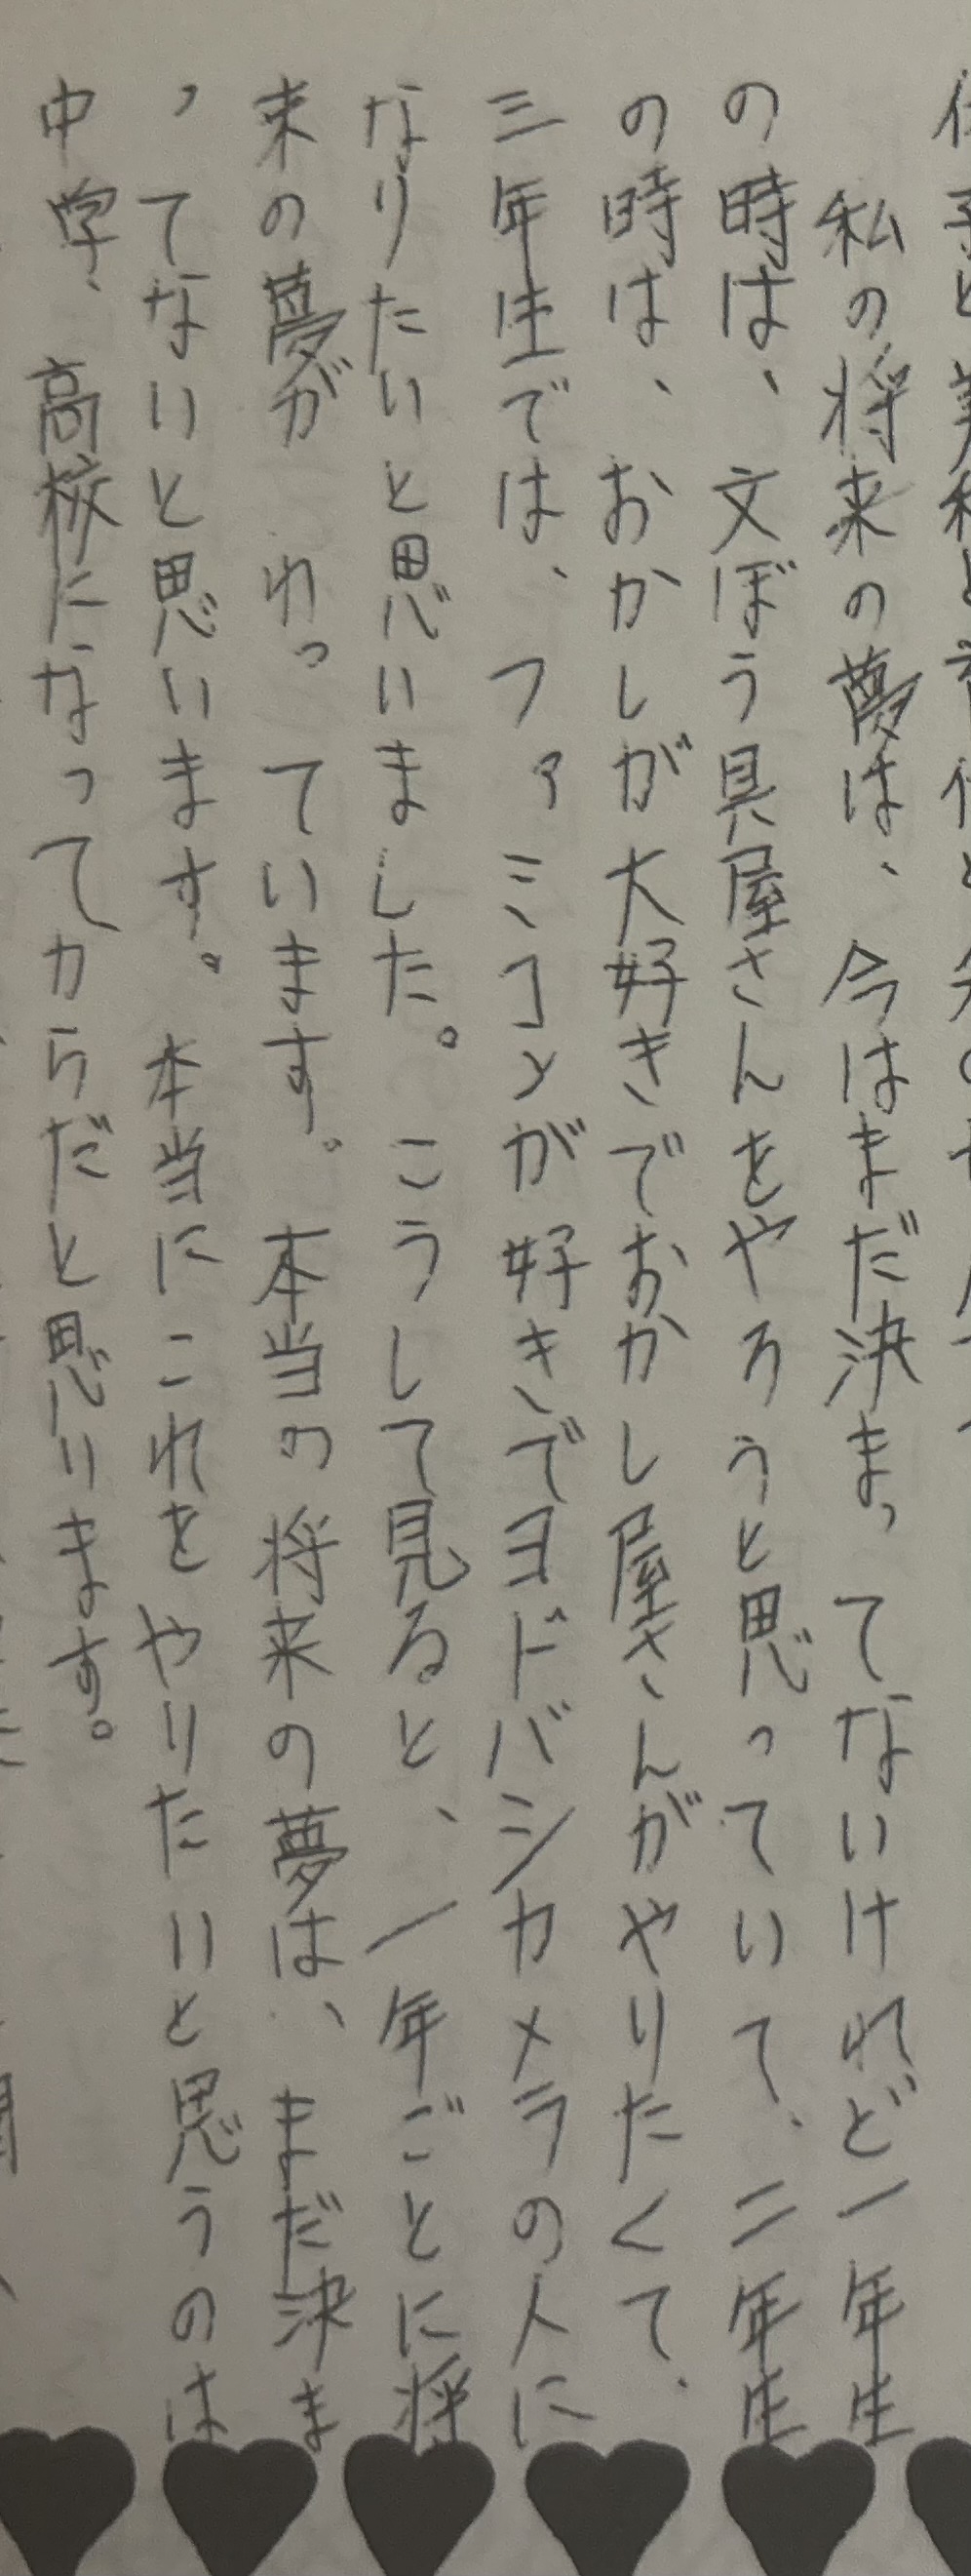 私の将来の夢は、今はまだ決まってないけれど一年生
の時は、文ぼう具屋さんをやろうと思っていて、二年生
の時は、おかしが大好きでおかし屋さんがやりたくて、
三年生では、ファミコンが好きでヨドバシカメラの人に
なりたいと思いました。こうして見ると、一年ごとに将
来の夢がわっています。本当の将来の夢は、まだ決ま
ってないと思います。本当にこれをやりたいと思うのは
中学、高校になってからだと思います。